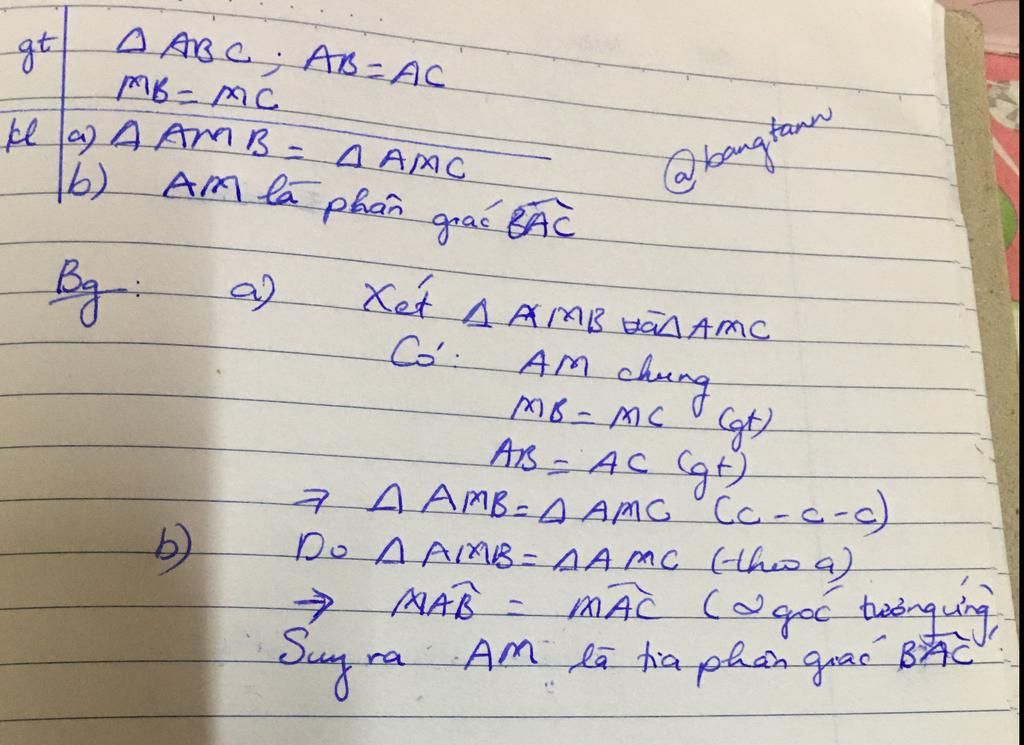 gt Δ ABC ; AB = AC
MB = MC
kl a) Δ AMB = Δ AMC
@bangtann
b) AM là phân giác BAC
Bg: a) Xét Δ AMB và Δ AMC
Có: AM chung
MB = MC (gt)
AB = AC (gt)
⇒ Δ AMB = Δ AMC (c-c-c)
b) Do Δ AMB = Δ AMC (theo a)
→ MAB̂ = MAĈ (2 góc tương ứng)
Suy ra AM là tia phân giác BAC